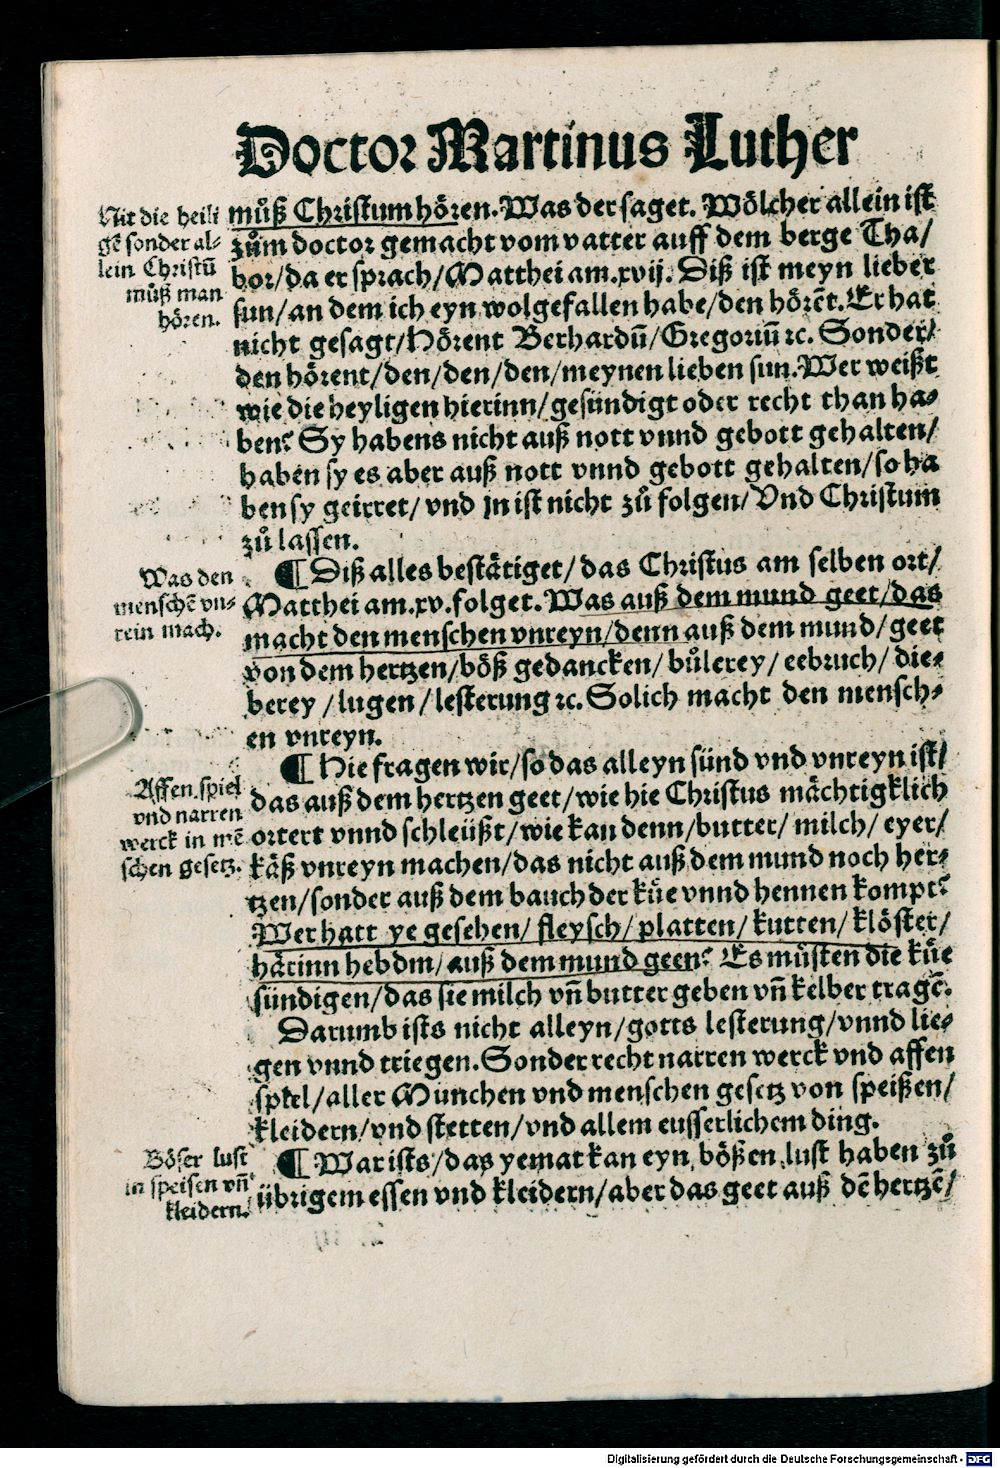 Doctor Martinus Luther
Nit die heili
gẽ sonder al-
lein Christũ
můß man
hören.
můß Christum hören. Was der saget. Wölcher allein ist
zům doctor gemacht vom vatter auff dem berge Tha/
bor/da er sprach/Matthei am.xvij. Diß ist meyn lieber
sun/an dem ich eyn wolgefallen habe/den hörẽt. Er hat
nicht gesagt/Hörent Berhardũ/Gregoriũ ꝛc. Sonder/
den hörent/den/den/den/meynen lieben sun. Wer weißt
wie die heyligen hierinn/gesündigt oder recht than ha-
ben? Sy habens nicht auß nott vnnd gebott gehalten/
haben sy es aber auß nott vnnd gebott gehalten/so ha
ben sy geirret/vnd jn ist nicht zů folgen/Vnd Christum
zů lassen.
Was den
menschẽ vn-
rein mach.
¶ Diß alles bestätiget/das Christus am selben ort/
Matthei am.xv.folget. Was auß dem mund geet/das
macht den menschen vnreyn/denn auß dem mund/geet
von dem hertzen/böß gedancken/bůlerey/eebruch/die-
berey/lugen/lesterung ꝛc. Solich macht den mensch-
en vnreyn.
Affen spiel
vnd narren
werck in mẽ
schen gesetz.
¶ Hie fragen wir/so das alleyn sünd vnd vnreyn ist/
das auß dem hertzen geet/wie hie Christus mächtigklich
ortert vnnd schleüßt/wie kan denn/butter/milch/eyer/
käß vnreyn machen/das nicht auß dem mund noch her-
tzen/sonder auß dem bauch der kůe vnnd hennen kompt?
Wer hatt ye gesehen/fleysch/platten/kutten/klöster/
härinn hebdm/auß dem mund geen? Es müsten die kůe
sündigen/das sie milch vñ butter geben vñ kelber tragẽ.
Darumb ists nicht alleyn/gotts lesterung/vnnd lie-
gen vnnd triegen. Sonder recht narren werck vnd affen
spiel/aller München vnd menschen gesetz von speißen/
kleidern/vnd stetten/vnd allem eusserlichem ding.
Böser lust
in speisen vñ
kleidern.
¶ War ists/das yemat kan eyn bößen lust haben zů
übrigem essen vnd kleidern/aber das geet auß dẽ hertzẽ/
Digitalisierung gefördert durch die Deutsche Forschungsgemeinschaft - DFG